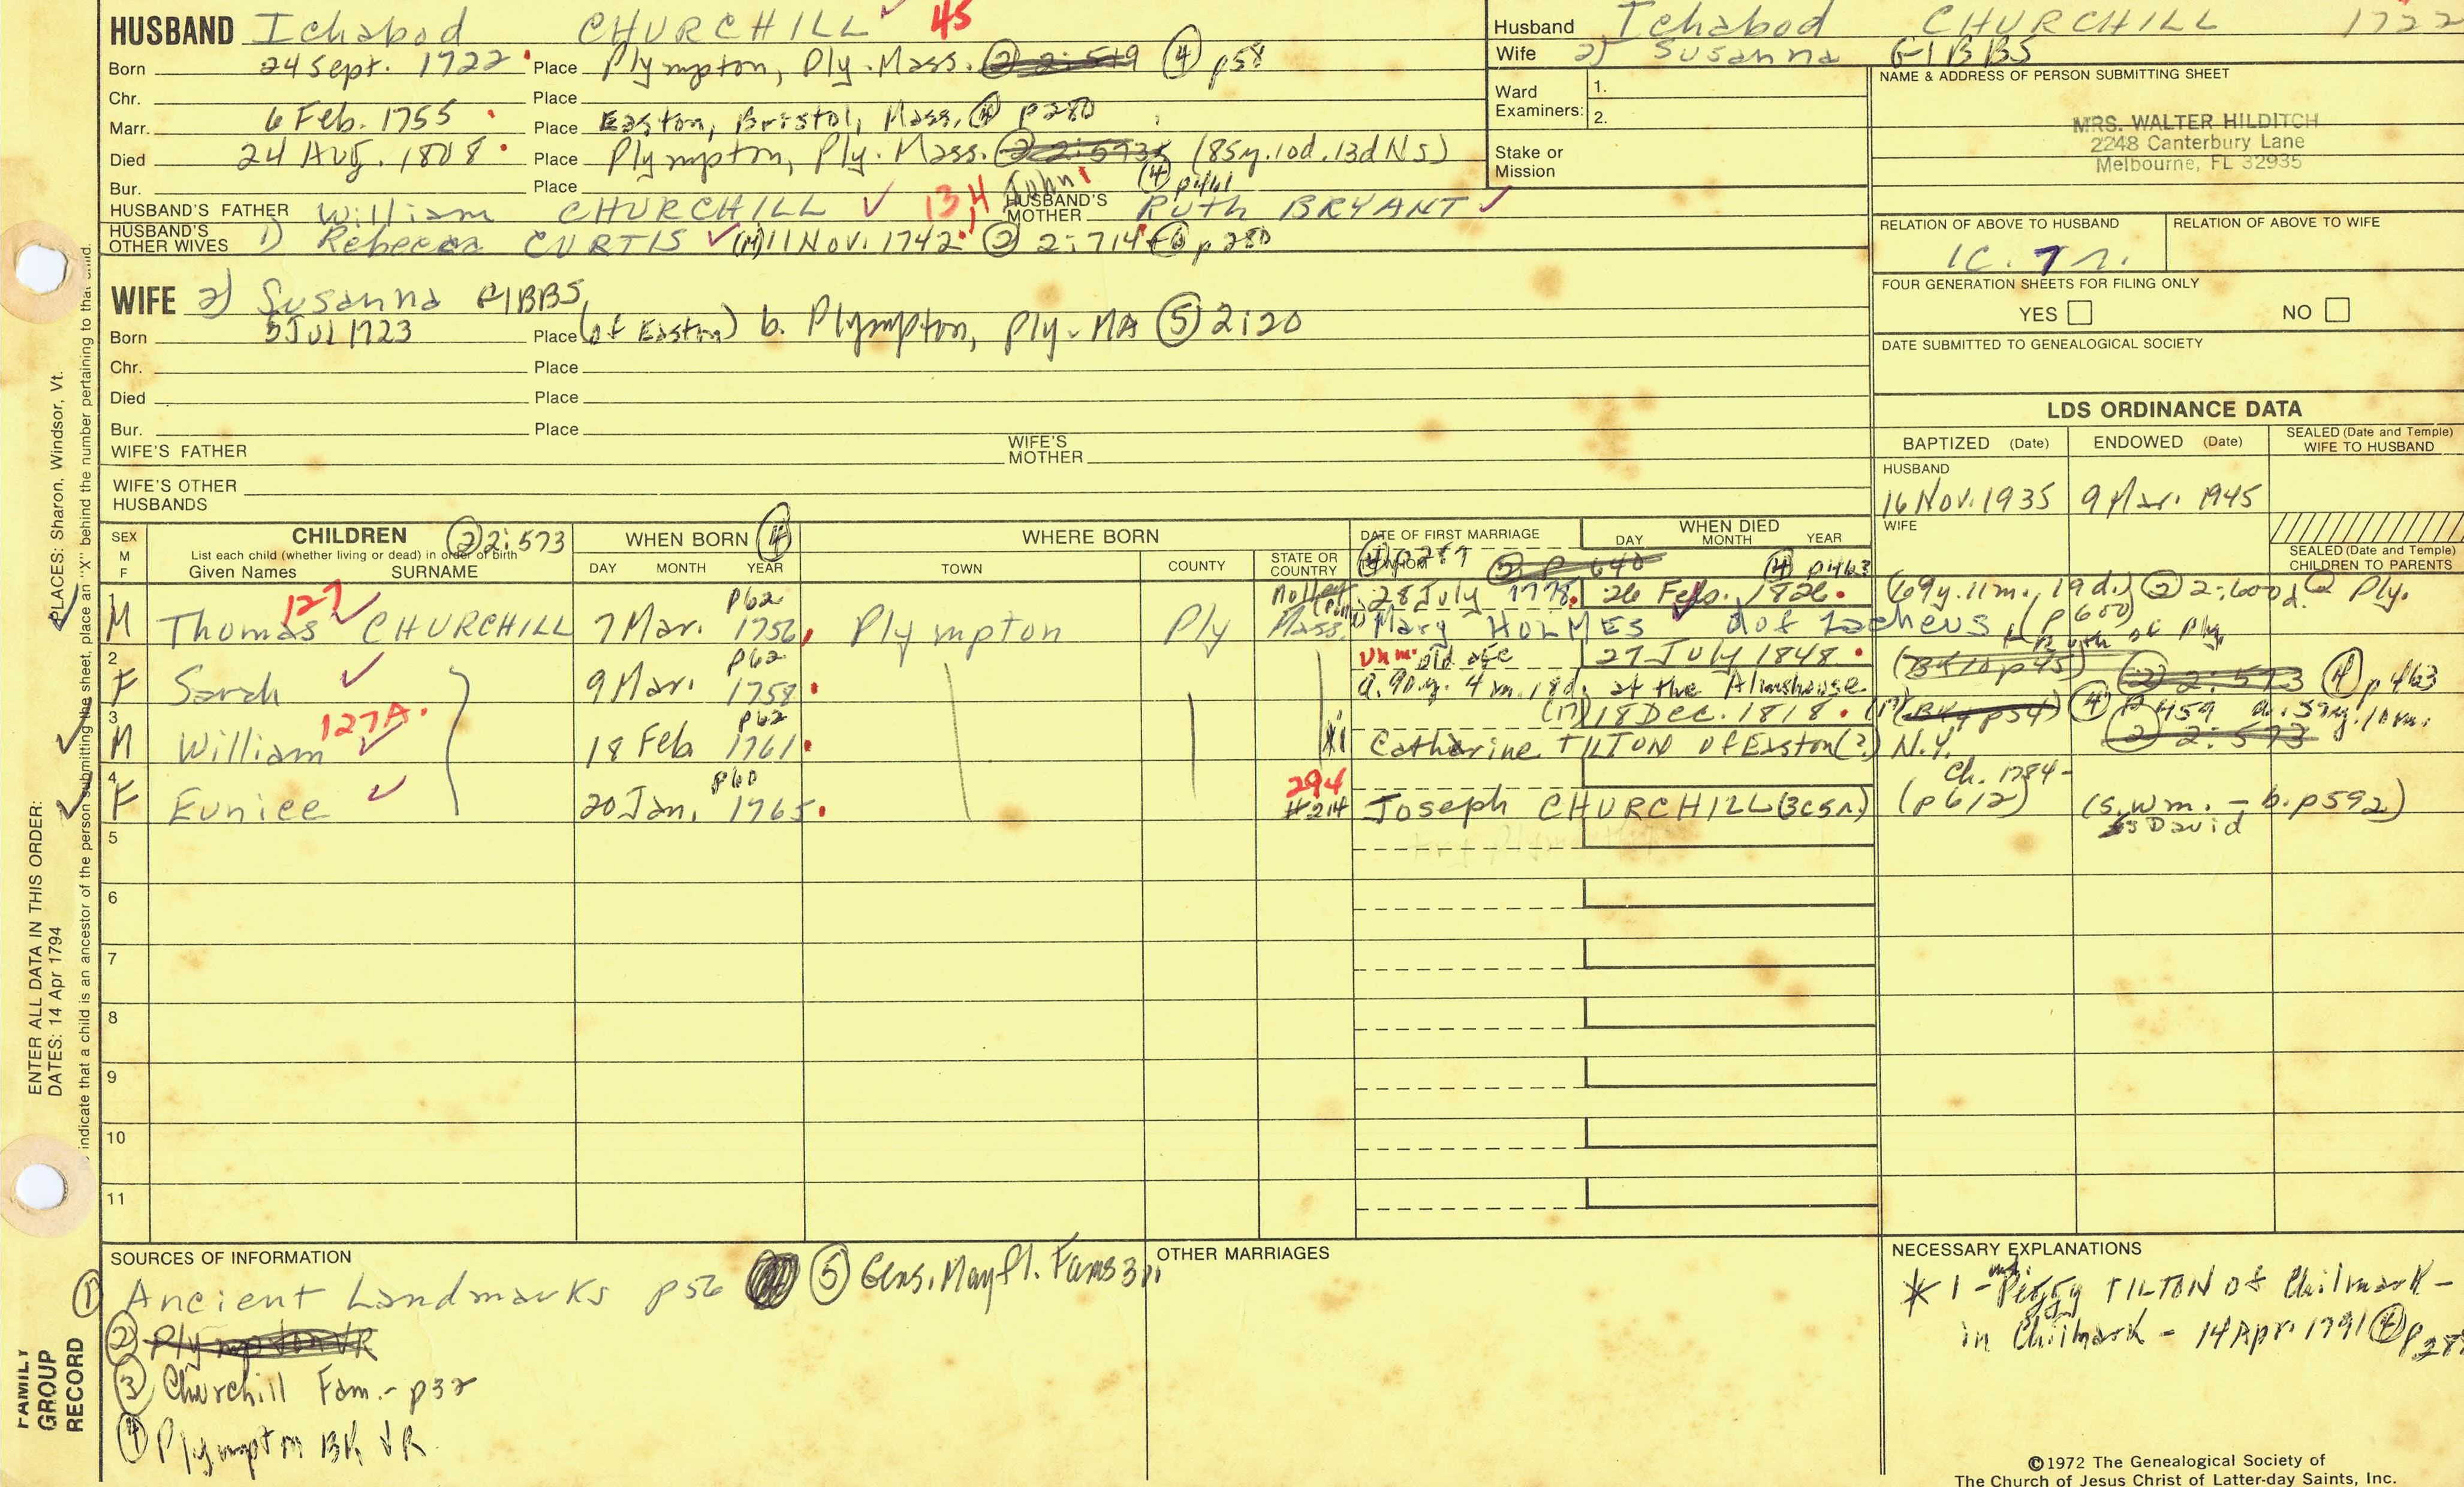 HUSBAND Ichabod CHURCHILL 45
Born 24 Sept. 1722 Place Plympton, Ply. Mass. ② 2:519 ④ p58
Chr. Place
Marr. 6 Feb. 1755 Place Easton, Bristol, Mass. ④ p280
Died 24 Aug. 1808 Place Plympton, Ply. Mass. ② 2:573 (85y.10d.13d NS)
Bur. Place John ④ p461
HUSBAND'S FATHER William CHURCHILL 13,4 HUSBAND'S MOTHER Ruth BRYANT
HUSBAND'S OTHER WIVES 1) Rebecca CURTIS (M) 11 Nov. 1742 ② 2:714 ④ p280
Husband Ichabod CHURCHILL 1722
Wife 2) Susanna GIBBS
Ward Examiners: 1.
2.
Stake or Mission
NAME & ADDRESS OF PERSON SUBMITTING SHEET
MRS. WALTER HILDITCH
2248 Canterbury Lane
Melbourne, FL 32935
RELATION OF ABOVE TO HUSBAND RELATION OF ABOVE TO WIFE
1C. 7 r.
FOUR GENERATION SHEETS FOR FILING ONLY
YES NO
DATE SUBMITTED TO GENEALOGICAL SOCIETY
WIFE 2) Susanna GIBBS
Born 5 Jul 1723 Place (of Easton) b. Plympton, Ply. MA ⑤ 2:20
Chr. Place
Died Place
Bur. Place
WIFE'S FATHER WIFE'S MOTHER
WIFE'S OTHER HUSBANDS
LDS ORDINANCE DATA
BAPTIZED (Date) ENDOWED (Date) SEALED (Date and Temple) WIFE TO HUSBAND
HUSBAND
16 Nov. 1935 9 Mar. 1945
WIFE
SEALED (Date and Temple) CHILDREN TO PARENTS
SEX M F CHILDREN ② 2:573 WHEN BORN ④ WHERE BORN DATE OF FIRST MARRIAGE WHEN DIED
List each child (whether living or dead) in order of birth
Given Names SURNAME DAY MONTH YEAR TOWN COUNTY STATE OR COUNTRY TO WHOM DAY MONTH YEAR
② p 640 ④ p463
1 M Thomas 127 CHURCHILL 7 Mar. 1756 p62 Plympton Ply Mass. 28 July 1778 26 Feb. 1826 (69y.11m.19d.) ② 2:600 d. @ Ply.
Mary HOLMES d of Zacheus (p600)
2 F Sarah 9 Mar. 1758 p62 Unm. old age 27 July 1848 (Bk 10 p45) ② 2:573 ④ p463
a. 90.y. 4m. 18d. at the Almshouse
3 M William 127A. 18 Feb 1761 p62 (17) 18 Dec. 1818 ④ p459
Catharine TILTON of Easton (?) N.Y. ② 2:573
4 F Eunice 20 Jan. 1765 p60 294 #214 Joseph CHURCHILL (3C5r.) (p612) Ch. 1784- (s. Wm. - b. p592)
ss David
5
6
7
8
9
10
11
SOURCES OF INFORMATION
① Ancient Landmarks p56 ⑤ Gens. Mayfl. Fams 3v.
② Plympton VR
③ Churchill Fam. - p32
④ Plympton BK VR
OTHER MARRIAGES
NECESSARY EXPLANATIONS
* 1 - Peggy TILTON of Chilmark -
in Chilmark - 14 Apr. 1791 ④
©1972 The Genealogical Society of
The Church of Jesus Christ of Latter-day Saints, Inc.
ENTER ALL DATA IN THIS ORDER:
DATES: 14 Apr 1794
PLACES: Sharon, Windsor, Vt.
indicate that a child is an ancestor of the person submitting the sheet, place an "X" behind the number pertaining to that child.
FAMILY
GROUP
RECORD